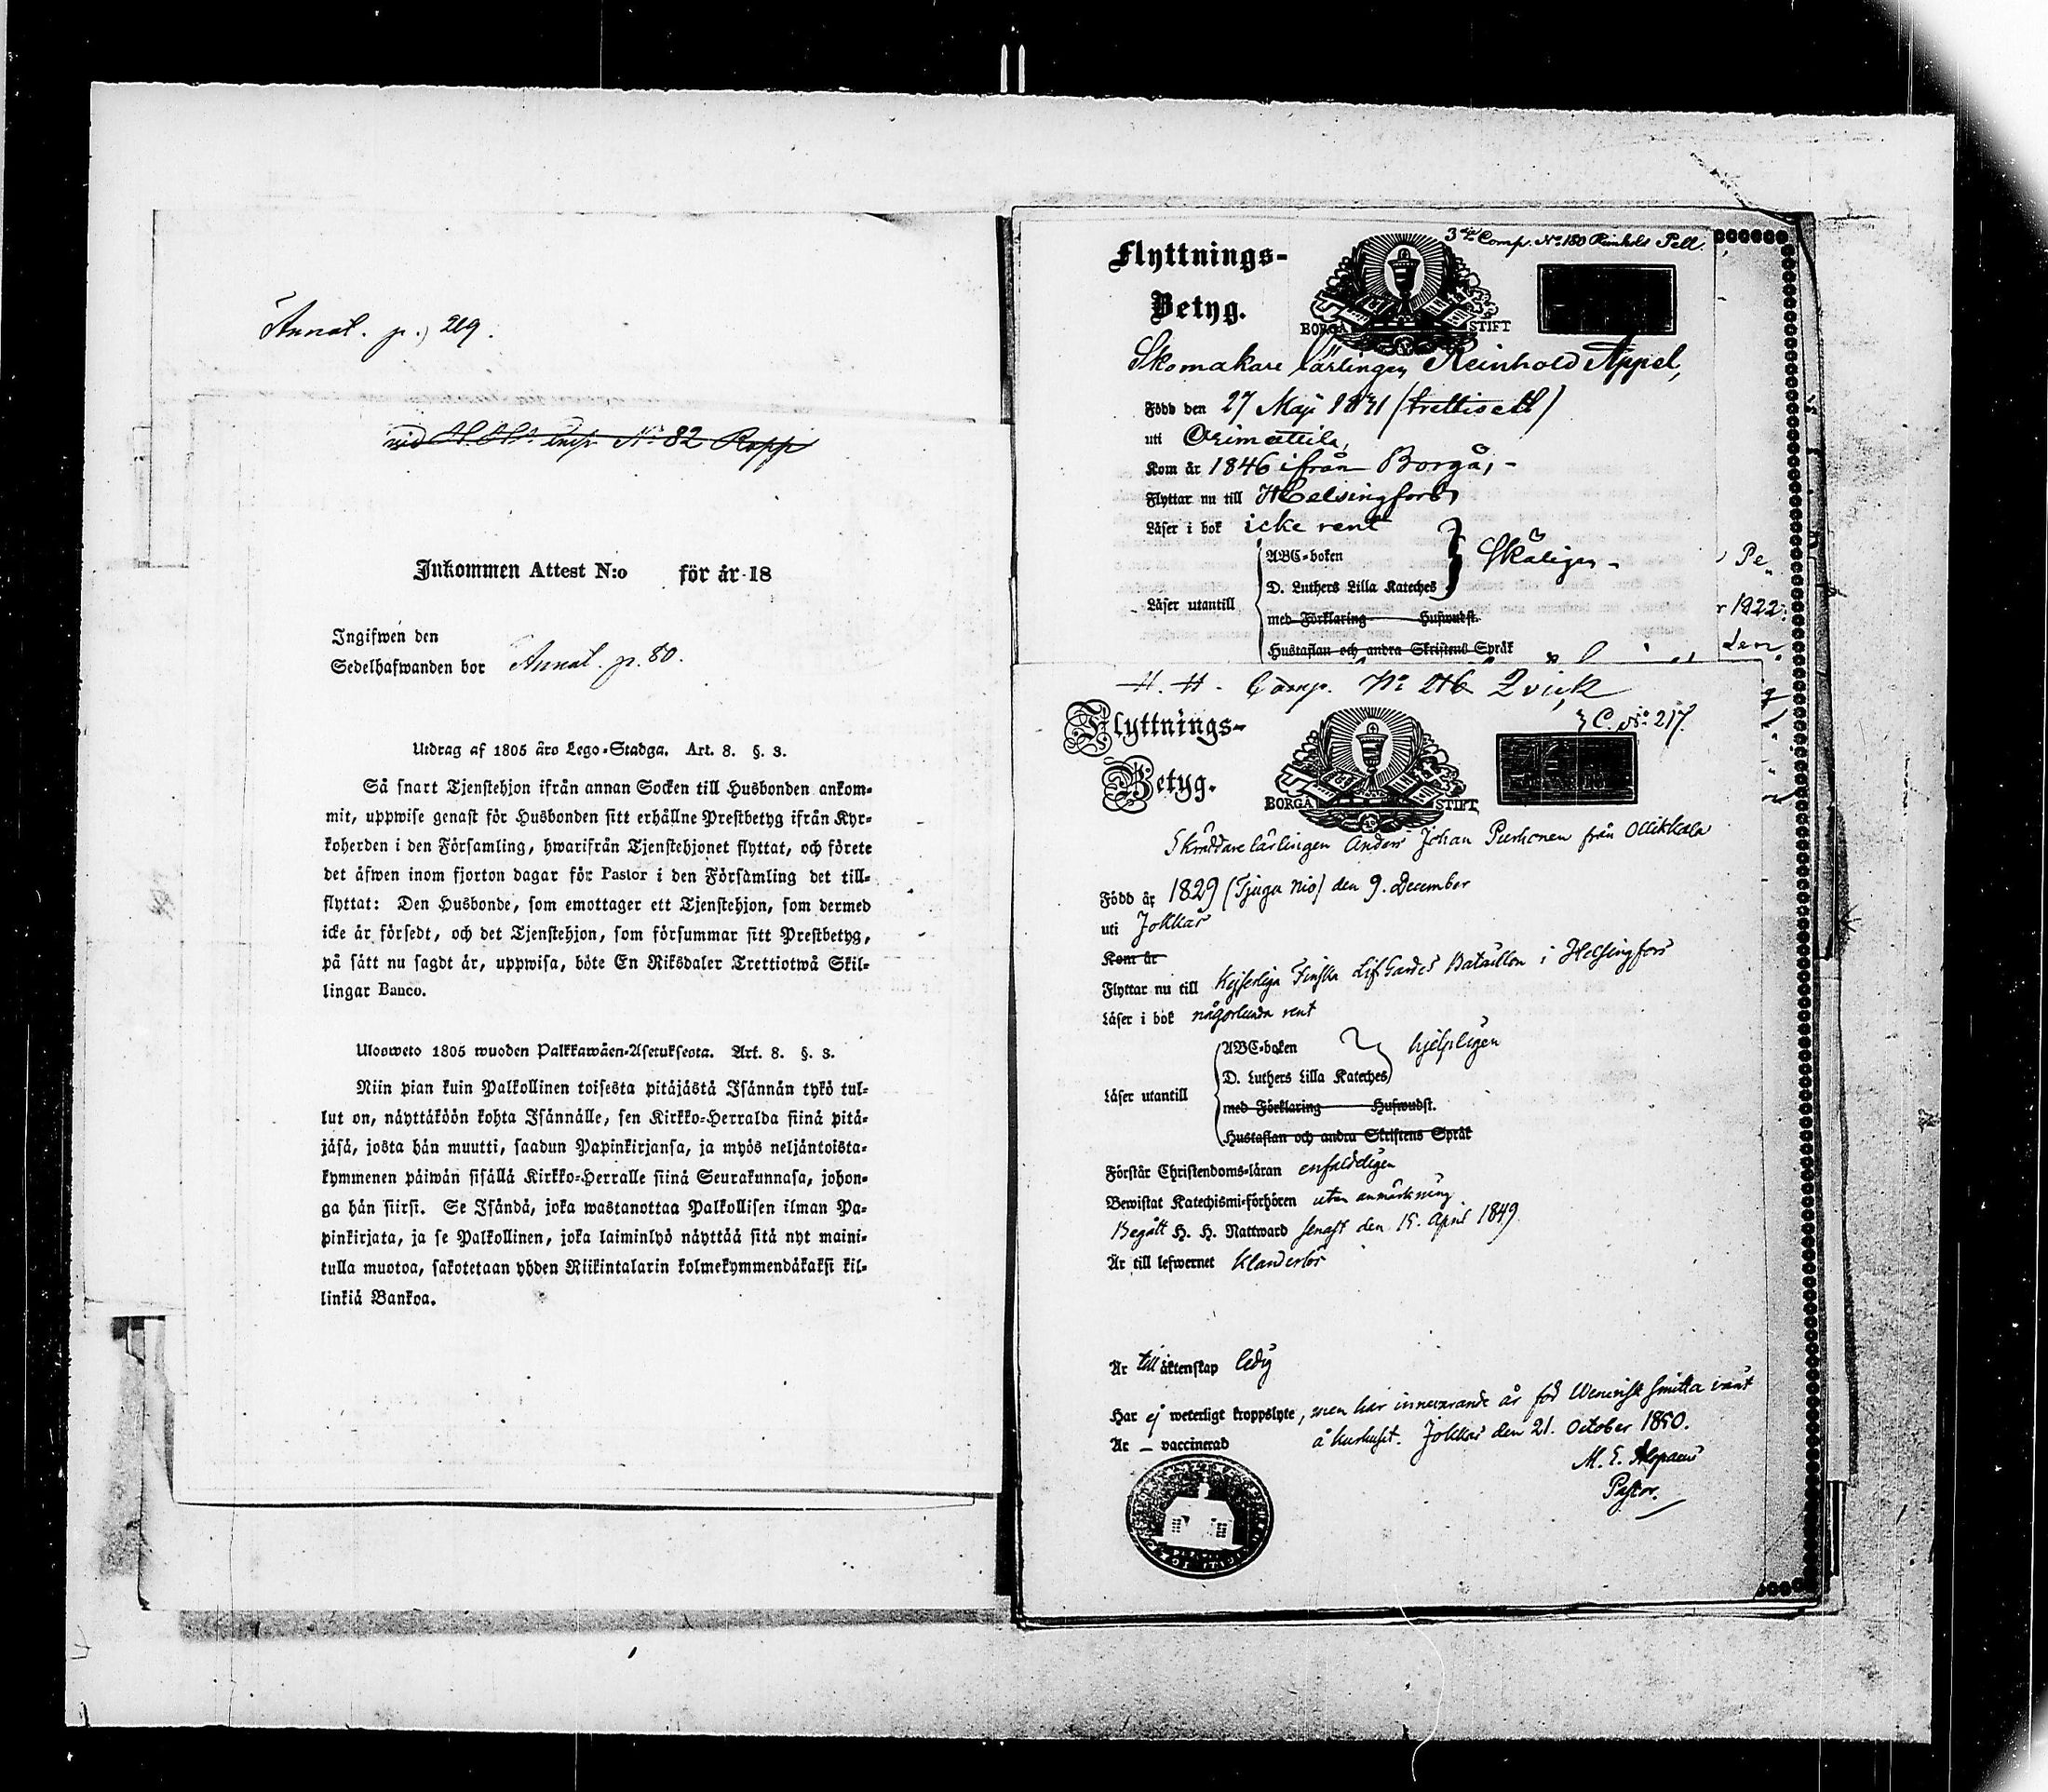 Annot. p. 219.
vid H. H:s Comp. No 82 Rapp
Inkommen Attest N:o för år 18
Ingifwen den
Sedelhafwanden bor Annot. p. 80.
Utdrag af 1805 års Lego-Stadga. Art. 8. §. 3.
Så snart Tjenstehjon ifrån annan Socken till Husbonden ankom-
mit, uppwise genast för Husbonden sitt erhållne Prestbetyg ifrån Kyr-
koherden i den Församling, hwarifrån Tjenstehjonet flyttat, och förete
det äfwen inom fjorton dagar för Pastor i den Församling det till-
flyttat: Den Husbonde, som emottager ett Tjenstehjon, som dermed
icke är försedt, och det Tjenstehjon, som försummar sitt Prestbetyg,
på sätt nu sagdt är, uppwisa, böte En Riksdaler Trettiotwå Skil-
lingar Banco.
Ulosweto 1805 wuoden Palkkawäen-Asetuksesta. Art. 8. §. 3.
Niin pian kuin Palkollinen toisesta pitäjästä Isännän tykö tul-
lut on, näyttäköön kohta Isännälle, sen Kirkko-Herralda siinä pitä-
jäsä, josta hän muutti, saadun Papinkirjansa, ja myös neljäntoista-
kymmenen päiwän sisällä Kirkko-Herralle siinä Seurakunnasa, johon-
ga hän siirsi. Se Isändä, joka wastanottaa Palkollisen ilman Pa-
pinkirjata, ja se Palkollinen, joka laiminlyö näyttää sitä nyt maini-
tulla muotoa, sakotetaan yhden Riikintalarin kolmekymmendäkaksi kil-
linkiä Bankoa.
3dje Comp. No 180 Reinhold Pell.
Flyttnings-
Betyg.
BORGÅ STIFT
Skomakare lärlingen Reinhold Appel,
Född den 27 Maji 1831 (trettiett)
uti Orimattila,
Kom år 1846 ifrån Borgå, -
Flyttar nu till Helsingfors
Läser i bok icke rent
Läser utantill
ABC-boken
D. Luthers Lilla Kateches
Skäligen -
med Förklaring Hufwudst.
Hustaflan och andra Skriftens Språk
Pe
1822.
den
H. H. Comp. No 216 Qvick
3 C. No 217.
Flyttnings-
Betyg.
BORGÅ STIFT
Skräddare lärlingen Anders Johan Purhonen från Ollikkala
Född år 1829 (Tjugu nio) den 9. December
uti Jokkas
Kom år
Flyttar nu till Kejserliga Finska Lif Gardes Bataillon i Helsingfors
Läser i bok någorlunda rent
Läser utantill
ABC-boken
D. Luthers Lilla Kateches
hjelpligen
med Förklaring Hufwudst.
Hustaflan och andra Skriftens Språk
Förstår Christendoms-läran enfaldeligen
Bewistat Katechismi-förhören utan anmärkning
Begått H. H. Nattward senast den 15. April 1849
Är till lefwernet klanderlös
Är till äktenskap ledig
Har ej weterligt kroppslyte, men har innevarande år för Wenerisk smitta varit
Är – vaccinerad å kurhuset. Jokkas den 21. October 1850.
M. E. Alopaeus
Pastor.